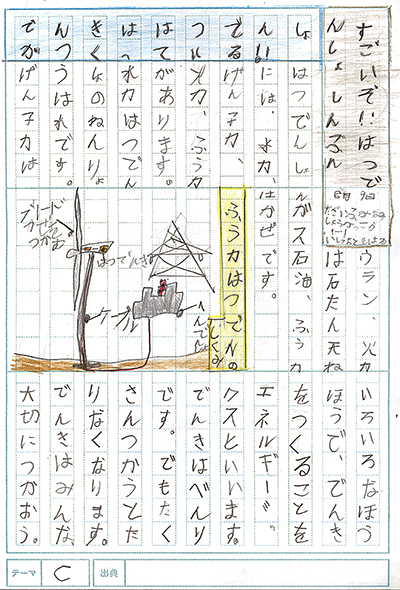 すごいぞ!!はつで
んしょしんぶん
でんきははつでんしょ
がつくっている!!
はつでんしょ
には、水力、
げん子力、
火力、ふう力
があります。
水力はつでん
しょのねんりょ
うは水です。
げん子力は
ウラン、火力
は石たん天ね
んガス石油、ふう力
はかぜです。
ふう力はつでんの
しくみ
ブレード
かぜを
つかむ
はつでんき
ケーブル
へんでんしょ
いろいろなほう
ほうで、でんき
をつくることを
エネルギーミッ
クスといいます。
でんきはべんり
です。でもたく
さんつかうとた
りなくなります。
でんきはみんな
大切につかおう。
テーマ C 出典